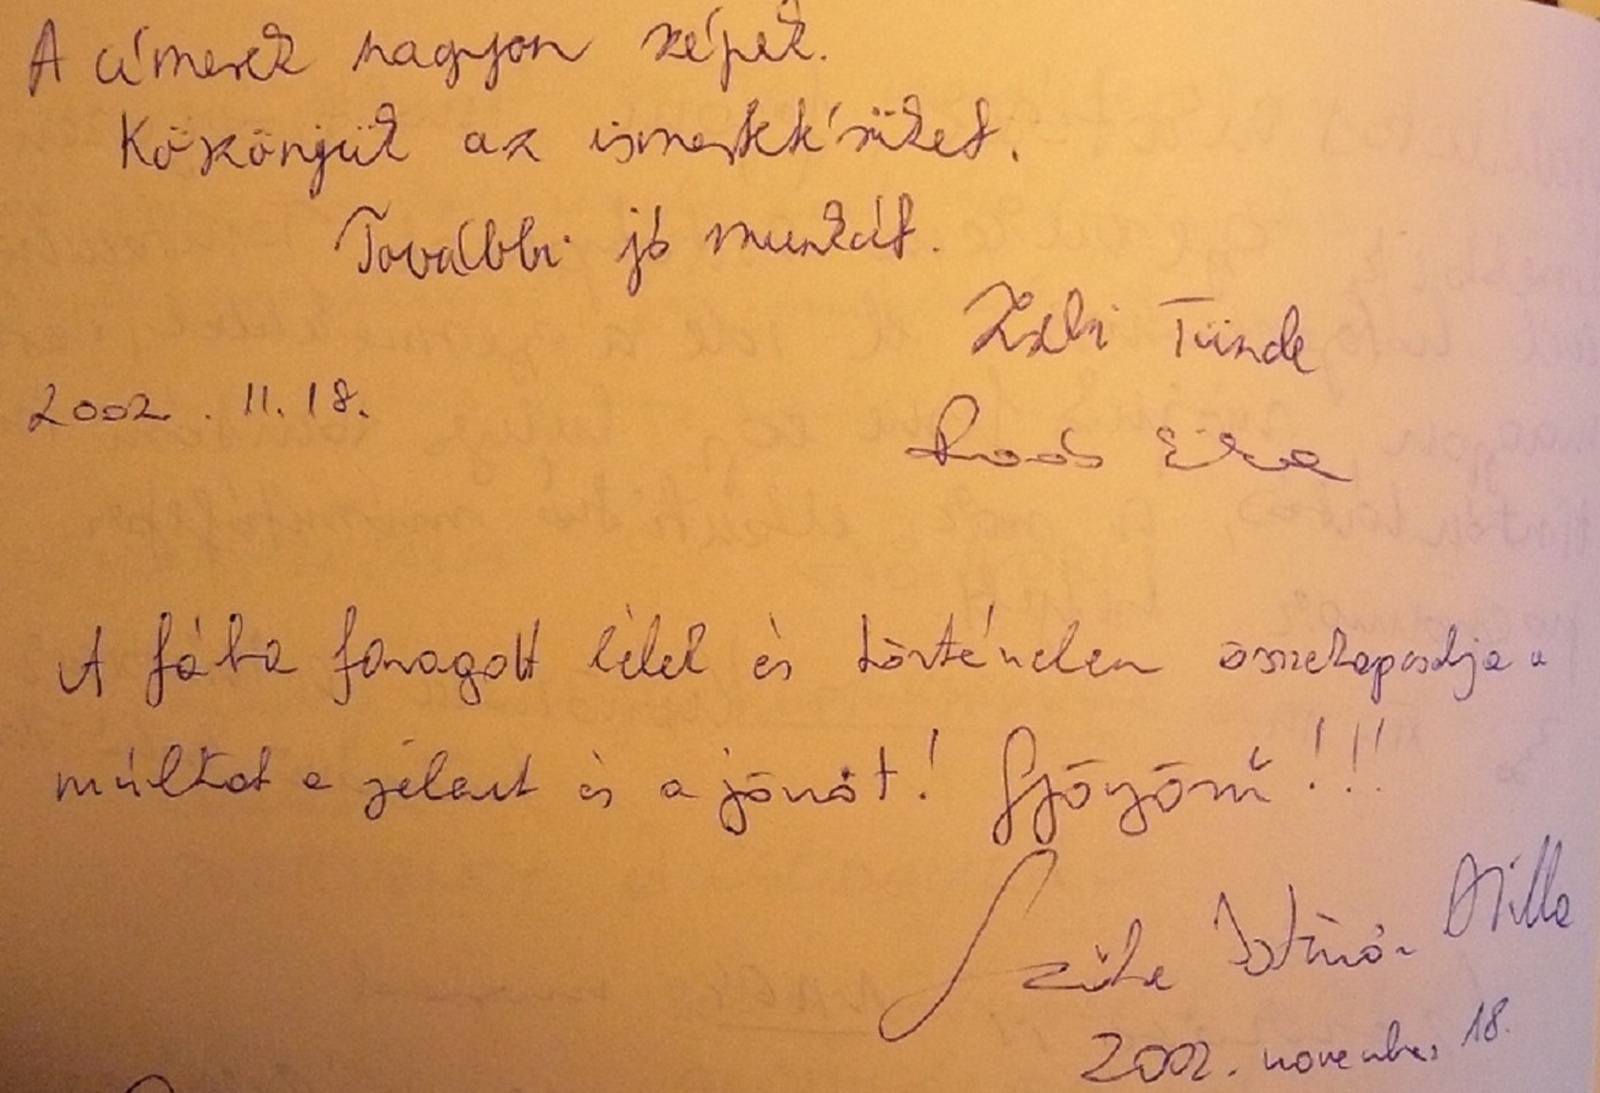 A címerek nagyon szépek.
Köszönjük az ismertetésüket.
További jó munkát.
Tünde
2002. 11. 18.
A fába faragott lélek és történelem összekapcsolja a
múltat a jelent és a jövőt! Gyönyörű!!!
Szőke István Attila
2002. november 18.